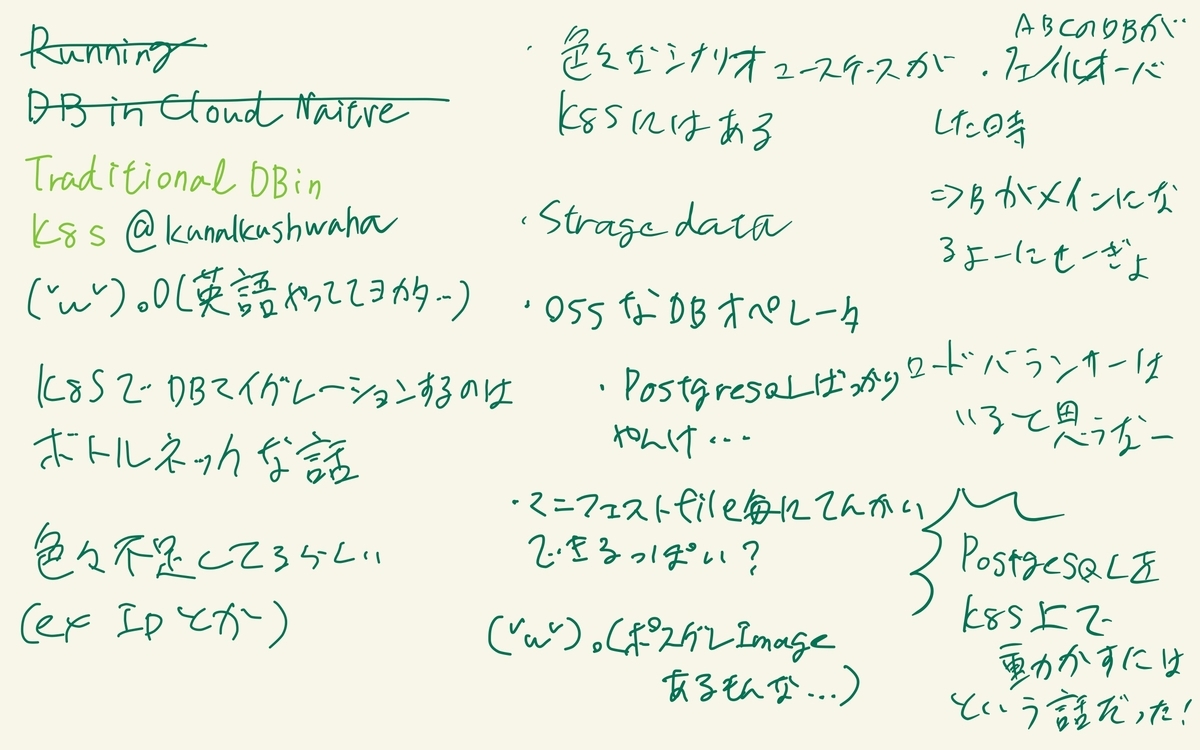 Running
DB in Cloud Naitve
Traditional DB in
K8s @kunalkushwaha
(ˇωˇ)。O(英語やっててヨカター)
K8Sで DBマイグレーションするのは
ボトルネックな話
色々不足してるらしい
(ex IPとか)
・色々なシナリオ ユースケースが
K8Sにはある
・Strage data
・OSSなDBオペレータ
・PostgresQLばっかり
やんけ...
・マニフェストfile毎にてんかい
できるっぽい?
(ˇωˇ)。(ポスグレImage
あるもんな...)
ABCのDBが
・フェイルオーバ
した時
=>Bがメインにな
るよーにせーぎょ
ロードバランサーは
いると思うなー
PostgeSQLを
K8S上で
動かすには
という話だった!